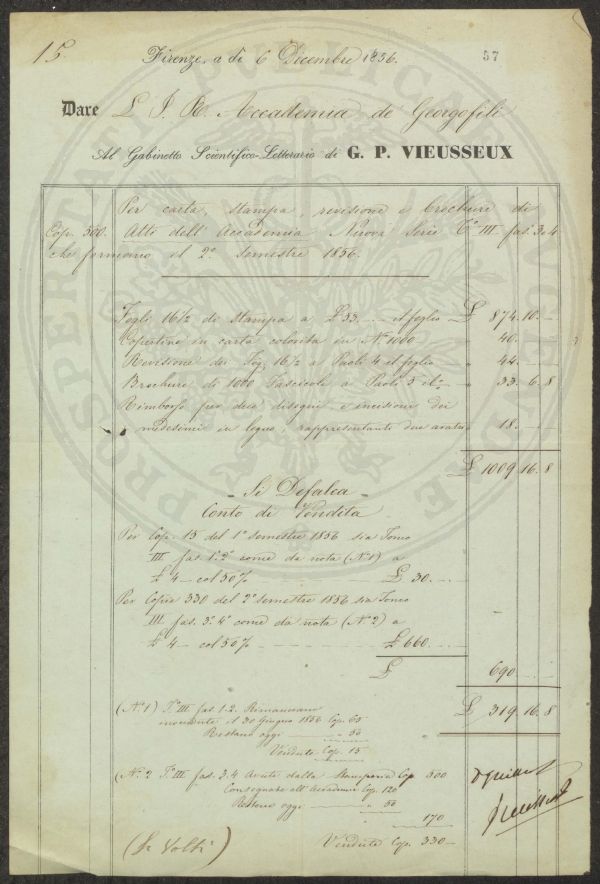 15.
Firenze, a dì 6 Dicembre 1856.
57
Dare L'I. R. Accademia de' Georgofili
Al Gabinetto Scientifico-Letterario di G. P. VIEUSSEUX
Per carta, stampa, revisione e brochure di
Cop. 500. Atti dell'Accademia Nuova Serie T.º III fas. 3.4
che formano il 2º Semestre 1856.
Fogli 16 1/2 di stampa a £ 33. — il foglio £ 874.10.—
Copertine in carta colorita in Nº 1000 " 40.—
Revisione dei fog. 16 1/2 a Paoli 4 il foglio " 44.—
Brochure di 1000 Fascicoli a Paoli 5 il % " 33.6.8
Rimborso per due disegni e incisioni dei
medesimi in legno, rappresentante due aratri " 18.—
£ 1009.16.8
Si Defalca
Conto di Vendita
Per Cop. 15 del 1º Semestre 1856 sia Tomo
III fas. 1.2 come da nota (Nº 1) a
£ 4 — col 50% £ 30.—
Per Copie 330 del 2º Semestre 1856 sia Tomo
III. fas. 3.4 come da nota (Nº 2) a
£ 4 — col 50% £ 660.—
£ 690.—
£ 319.16.8
(Nº 1) Tº III fas. 1.2. Rimanevano
invendute il 30 Giugno 1856 Cop. 65
Restano oggi — " 50
Vendute Cop. 15
(Nº 2 Tº III fas. 3.4 Avute dalla Stamperia Cop. 500
Consegnate all'Accademia Cop. 120
Restano oggi — " 50
" 170
Vendute Cop. 330 —
(Si Volti)
Vieusseux
PROSPERITATI PUBLICAE AUGENDAE